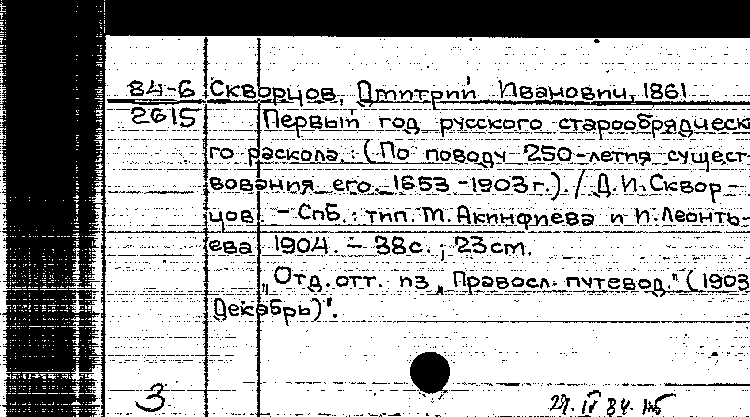 84-6 Скворцов, Дмитрий Иванович, 1861
2615 Первый год русского старообрядческ
го раскола. : (По поводу 250-летия сущест-
вования его. 1653-1903г.). / Д.И. Сквор-
цов. - Спб. : тип. М. Акинфиева и И. Леонть-
ева 1904. - 38с. ; 23см.
"Отд. отт. из "Правосл. путевод." (1903
Декабрь)".
3